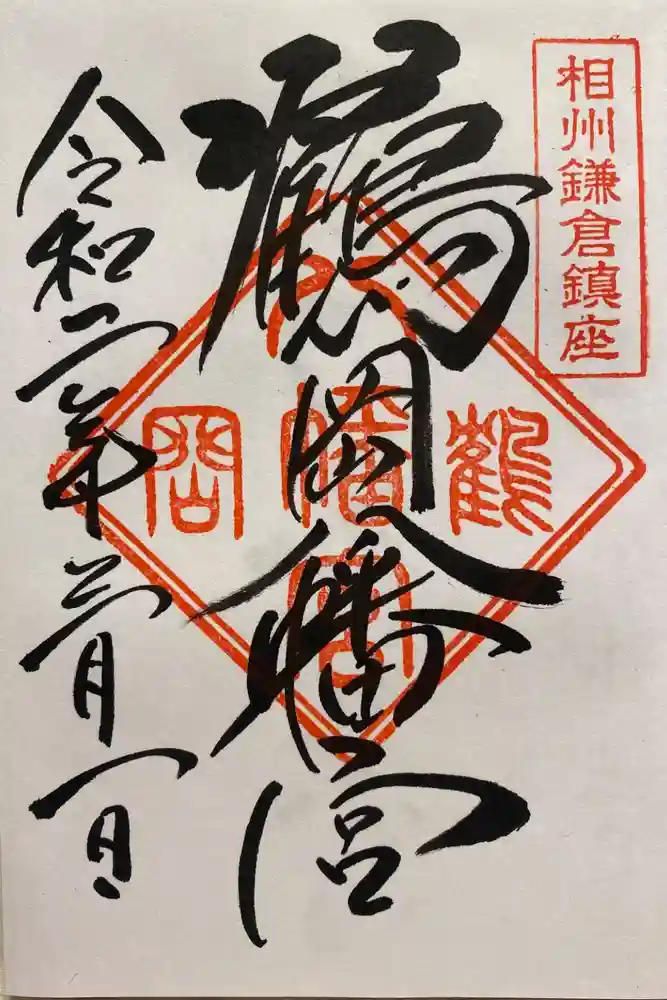 相州鎌倉鎮座
鶴岡八幡宮
鶴
八幡宮
岡
令和二年二月一日